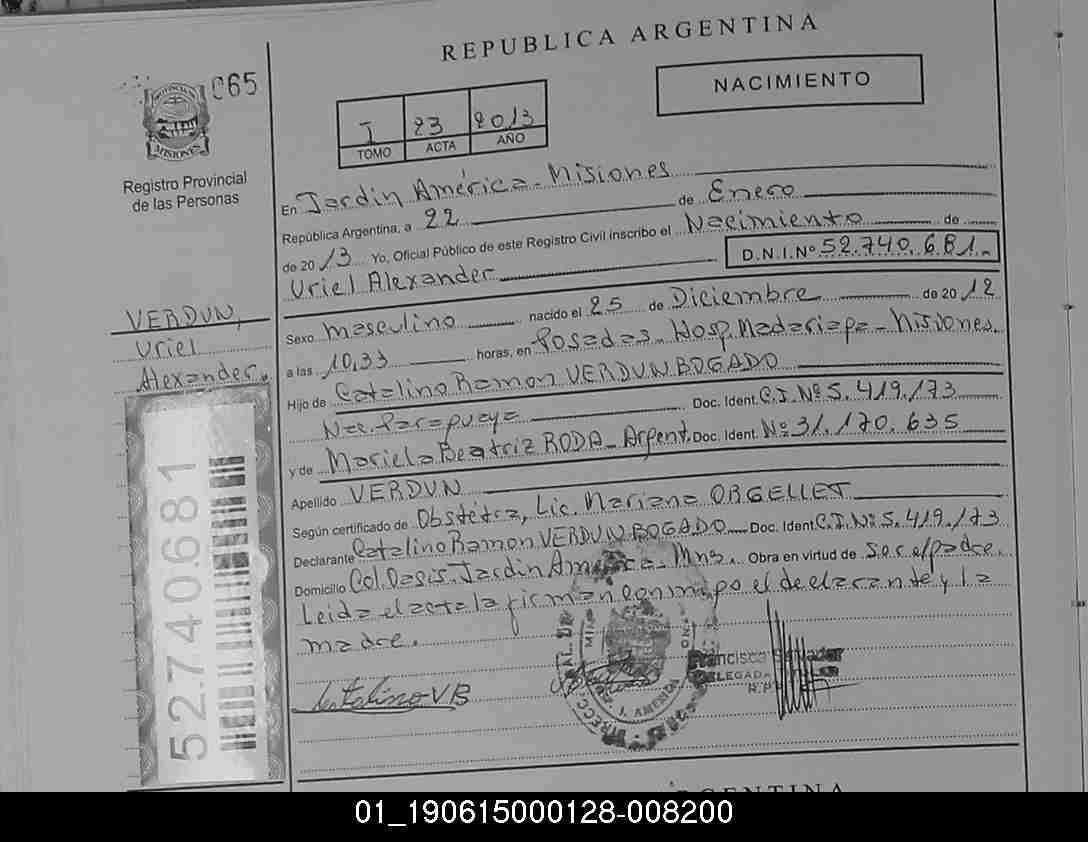 REPUBLICA ARGENTINA
065
NACIMIENTO
I 23 2013
TOMO ACTA AÑO
PROVINCIA
MISIONES
Registro Provincial
de las Personas
En Jardin América - Misiones
República Argentina, a 22 de Enero
de 2013 Yo, Oficial Público de este Registro Civil inscribo el Nacimiento de
Uriel Alexander D.N.I.Nº 52.740.681.-
VERDUN,
Uriel
Alexander.
Sexo masculino nacido el 25 de Diciembre de 2012
a las 10,33 horas, en Posadas - Hosp. Madariaga - Misiones.
Hijo de Catalino Ramon VERDUN BOGADO
Nac. Paraguaya Doc. Ident. C.I. Nº 5.419.173
y de Mariela Beatriz RODA - Argent. Doc. Ident. Nº 31.170.635
Apellido VERDUN
Según certificado de Obstétra, Lic. Mariana ORGELLET
Declarante Catalino Ramon VERDUN BOGADO Doc. Ident. C.I. Nº 5.419.173
Domicilio Col. Oasis. Jardin América - Mns. Obra en virtud de ser el padre.
Leida el acta la firman conmigo el declarante y la
madre.
52740681
Catalino VB
Francisca
DELEGADA
J. AMERICA
ARGENTINA
01_190615000128-008200